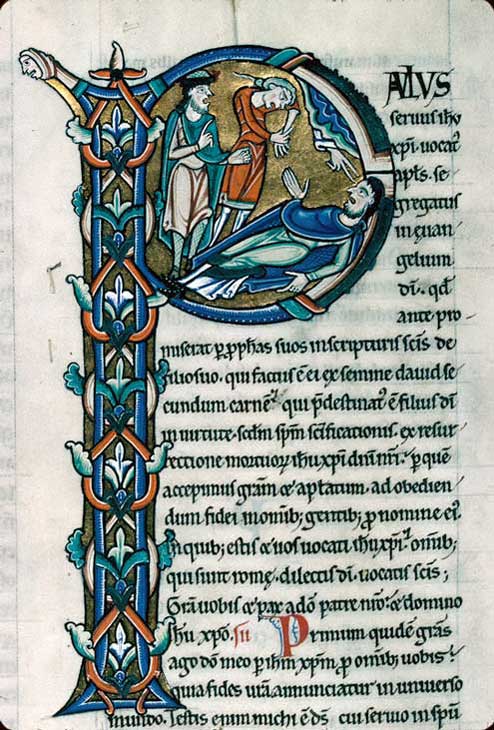 PAVLVS
seruus ihu̅
xp̅i. uocat᾽
apl̅s. se
gregatus
in euan
gelium
di̅. qd̅
ante pro
miserat ꝑ ꝓphas suos in scripturis sc̅is de
filio suo. qui factus e̅ ei ex semine dauid se
cundum carne̅. qui p̅destinat᾽ e̅ filius di̅
in uirtute. scd̅m sp̅m sc̅ificationis. ex resur
rectione mortuoꝝ ihu̅ xp̅i dn̅i nr̅i. ꝑ que̅
accepimus gr̅am & ap̅latum. ad obedien
dum fidei in omib; gentib; ꝓ nomine ei᾽.
In quib; estis & uos uocati ihu̅ xp̅i. omib;
qui sunt rome. dilectis di̅. uocatis sc̅is;
Gr̅a uobis & pax a do̅ patre nr̅o. & domino
ihu̅ xp̅o. Primum quide̅ gr̅as
ago do̅ meo ꝑ ihm̅ xp̅m ꝓ omib; uobis.
quia fides ur̅a annunciatur in uniuerso
mundo. Testis enim michi e̅ ds̅ cui seruio in sp̅u